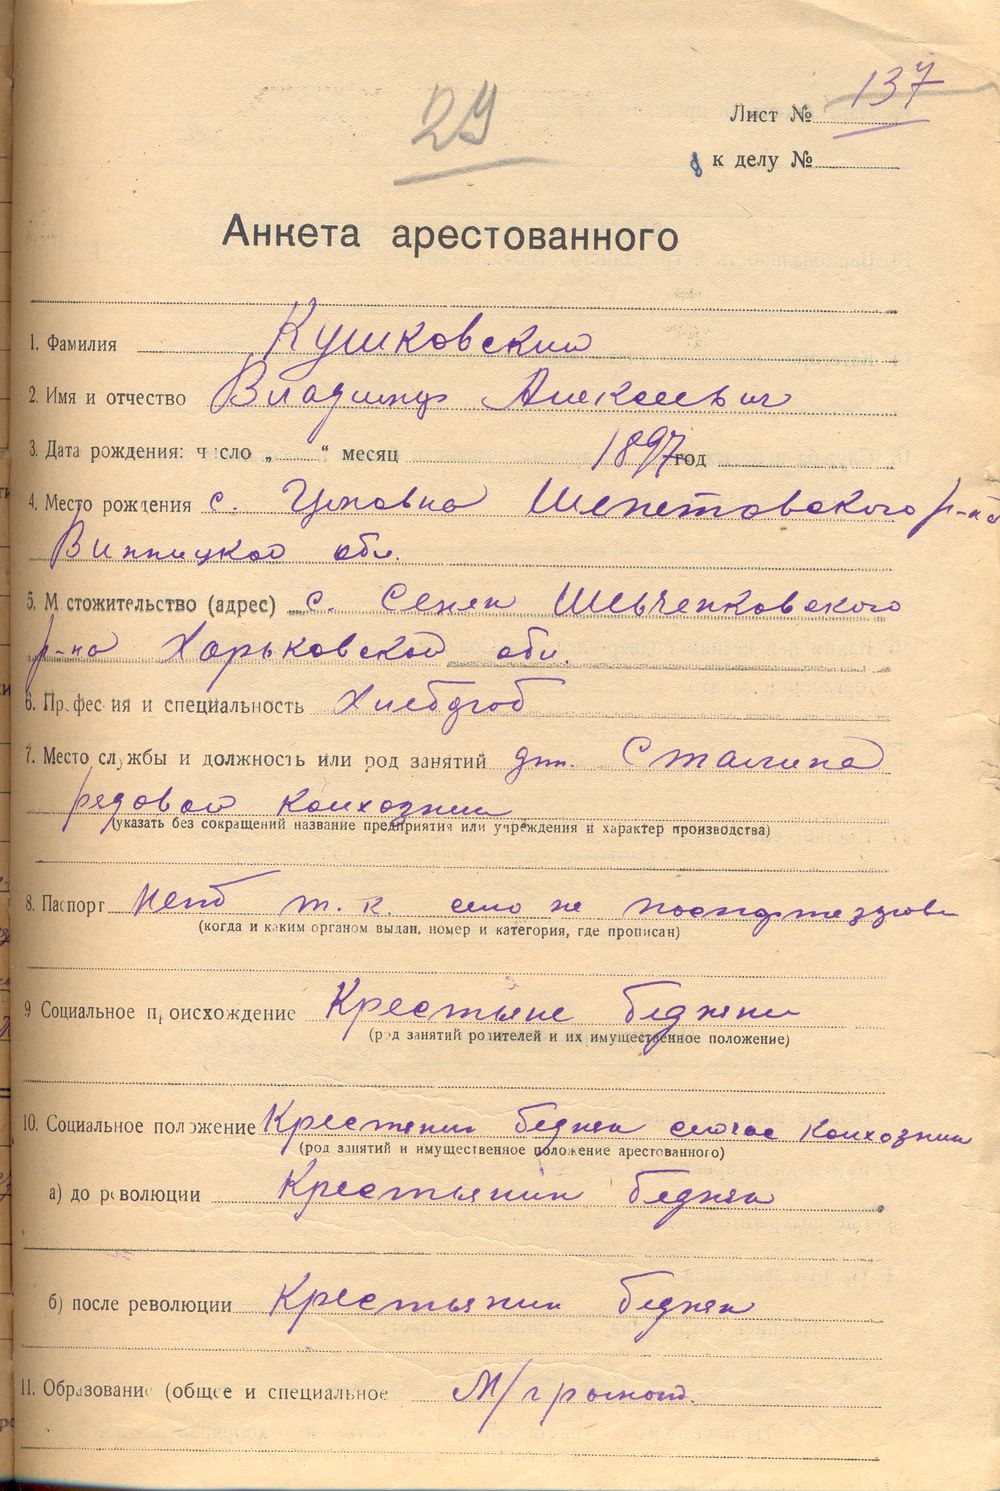 29
Лист № 137
к делу №
Анкета арестованного
1. Фамилия Кушковский
2. Имя и отчество Владимир Алексеевич
3. Дата рождения: число „ “ месяц 1897 год
4. Место рождения с. Шепетовского р-на
Винницкой обл.
5. М стожительство (адрес) с. Сенек Шевченковского
р-на Харьковской обл.
6. Профессия и специальность Хлебороб
7. Место службы и должность или род занятий Сталина
рядовой колхозник
(указать без сокращений название предприятия или учреждения и характер производства)
8. Паспорт нет т. к. село не
(когда и каким органом выдан, номер и категория, где прописан)
9 Социальное происхождение Крестьяне бедняки
(род занятий родителей и их имущественное положение)
10. Социальное положение Крестянин бедняк колхозник
(род занятий и имущественное положение арестованного)
а) до революции Крестьянин бедняк
б) после революции Крестьянин бедняк
11. Образование (общее и специальное М/грамот.